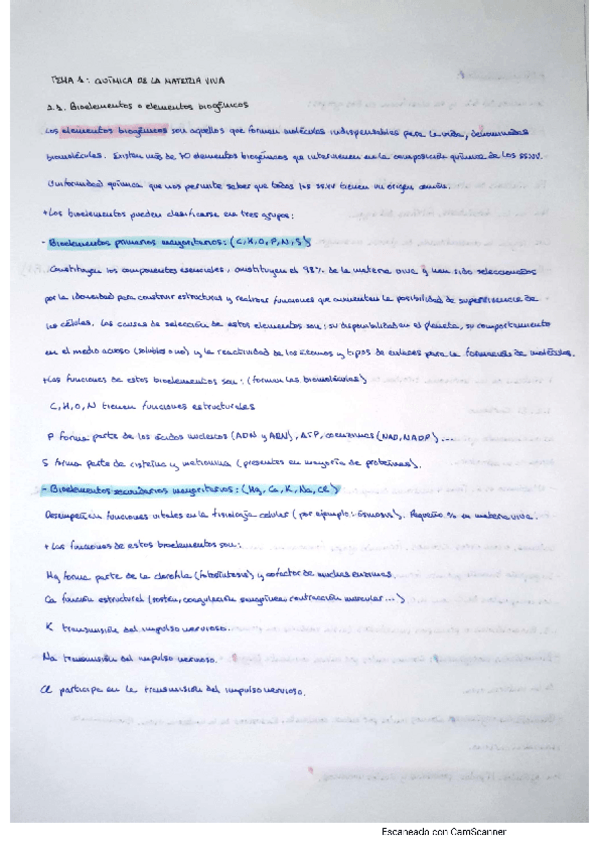 TEMA 1: QUÍMICA DE LA MATERIA VIVA
1.1. Bioelementos o elementos biogénicos
Los elementos biogénicos son aquellos que forman moléculas indispensables para la vida, denominadas
biomoléculas. Existen más de 70 elementos biogénicos que intervienen en la composición química de los ssvv.
Uniformidad química que nos permite saber que todos los ssvv tienen un origen común.
+ Los bioelementos pueden clasificarse en tres grupos:
- Bioelementos primarios mayoritarios: (C, H, O, P, N, S)
Constituyen los componentes esenciales, constituyen el 98% de la materia viva y han sido seleccionados
por la idoneidad para construir estructuras y realizar funciones que aumenten la posibilidad de supervivencia de
las células. Las causas de selección de estos elementos son: su disponibilidad en el planeta, su comportamiento
en el medio acuoso (solubles o no) y la reactividad de los átomos y tipos de enlaces para la formación de moléculas.
+ Las funciones de estos bioelementos son: (forman las biomoléculas)
C, H, O, N tienen funciones estructurales
P forma parte de los ácidos nucleicos (ADN y ARN), ATP, coenzimas (NAD, NADP)...
S forma parte de cisteína y metionina (presentes en mayoría de proteínas).
- Bioelementos secundarios mayoritarios: (Mg, Ca, K, Na, Cl)
Desempeñan funciones vitales en la fisiología celular (por ejemplo: ósmosis). Pequeño % en materia viva.
+ Las funciones de estos bioelementos son:
Mg forma parte de la clorofila (fotosíntesis) y cofactor de muchas enzimas.
Ca función estructural (sostén, coagulación sanguínea, contracción muscular...)
K transmisión del impulso nervioso.
Na transmisión del impulso nervioso.
Cl participa en la transmisión del impulso nervioso.
Escaneado con CamScanner